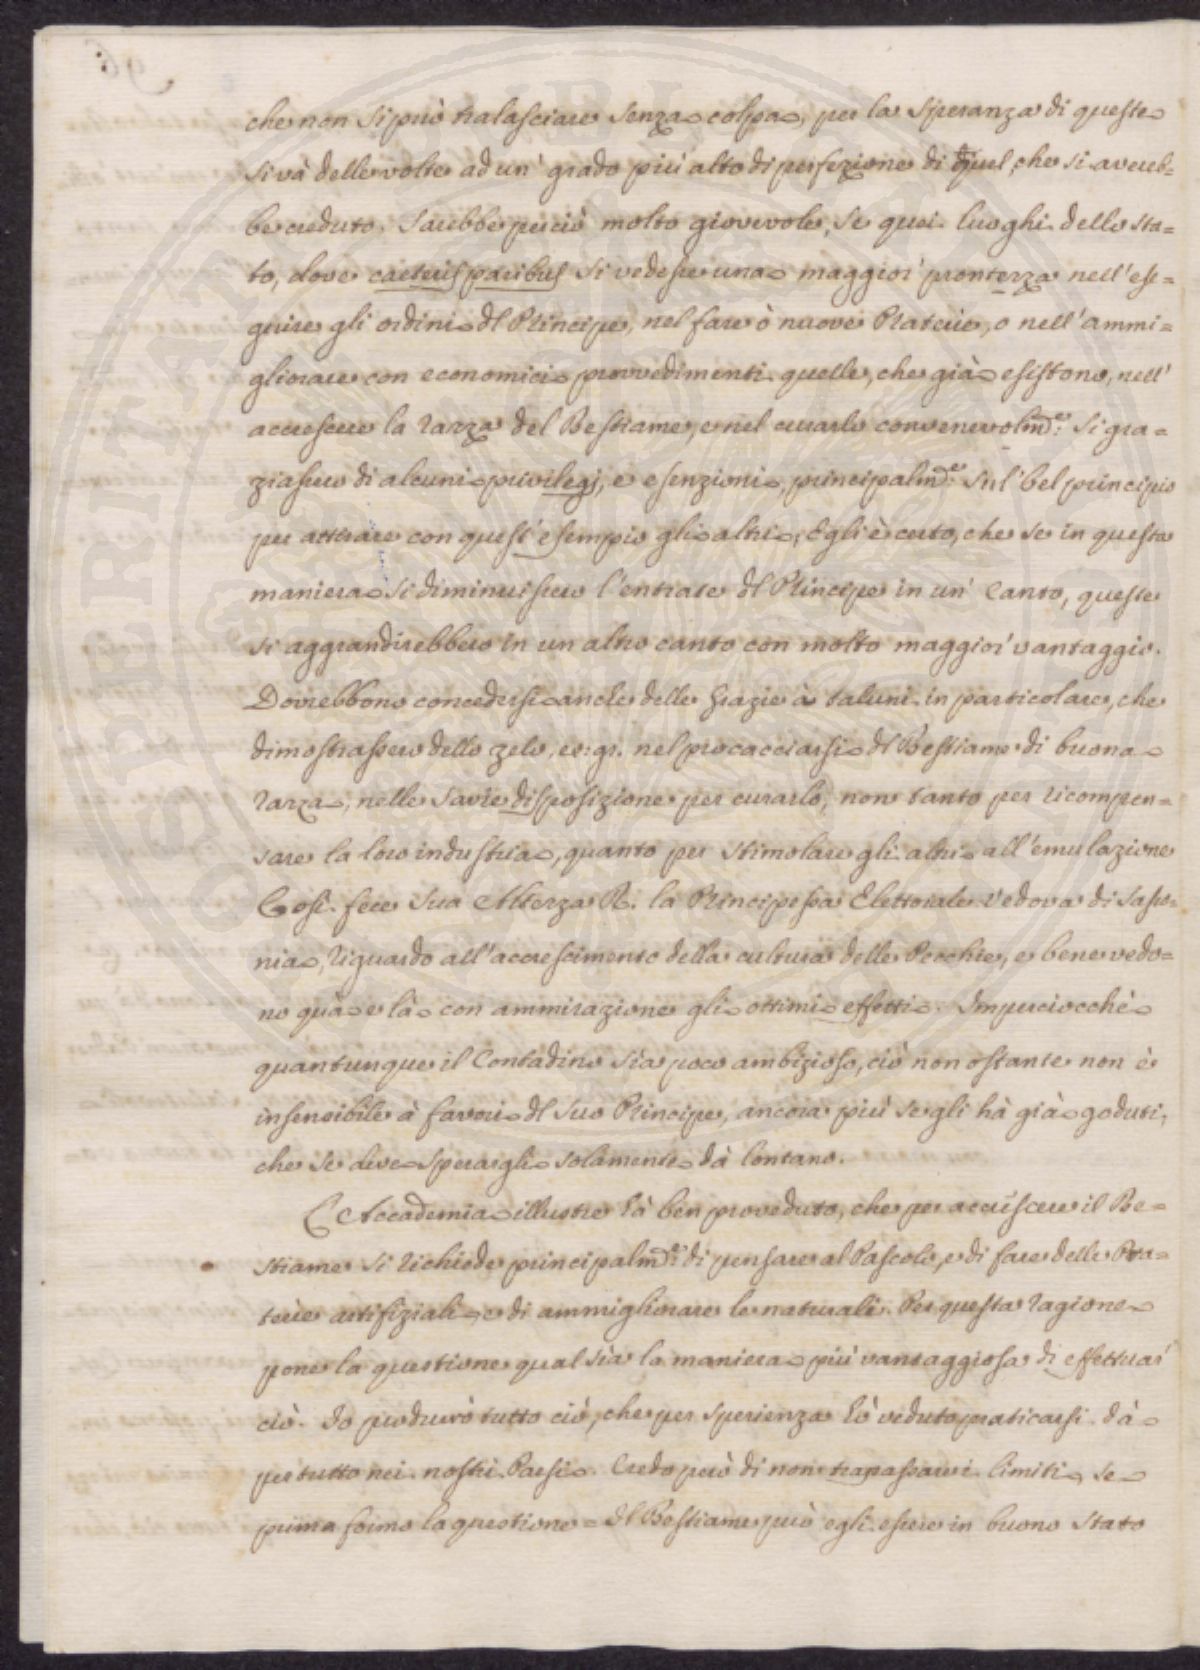 che non si può tralasciare senza colpa, per la speranza di queste
si và delle volte ad un' grado più alto di perfezione di quel, che si avereb=
be creduto. Sarebbe perciò molto giovevole, se quei luoghi dello sta=
to, dove caeteris paribus si vedesse una maggior' prontezza nell'ese=
guire gli ordini dl Principe, nel fare ò nuove Praterie, o nell'ammi=
gliorare con economici provvedimenti quelle, che già esistono, nell'
accrescere la razza del Bestiame, e nel curarlo convenevolmẽ: si gra=
ziassero di alcuni privilegj, e esenzioni, principalmẽ: sul' bel principio
per attirare con quest'esempio gli altri; Egli è certo, che se in questa
maniera si diminuissero l'entrate dl Principe in un' Canto, queste
si aggrandirebbero in un altro canto con molto maggior' vantaggio.
Dovrebbono concedersi anche delle grazie à taluni in particolare, che
dimostrassero dello zelo, ev: gr. nel procacciarsi dl Bestiame di buona
razza, nelle savie disposizione per curarlo, non tanto per ricompen=
sare la loro industria, quanto per stimolare gli altri all'emulazione
Così fece Sua Altezza R. la Principessa Elettorale Vedova di Sasso=
nia, riguardo all'accrescimento della cultura delle Pecchie, e bene vedo=
no quà e là con ammirazione gli ottimi effetti. Imperciocchè
quantunque il Contadino sia poco ambizioso, ciò non ostante non è
insensibile à favori dl suo Principe, ancora più se gli hà già goduti,
che se deve sperargli solamente dà lontano.
L'Accademia illustre hà ben proveduto, che per accriscere il Be=
stiame si richiede principalmẽ: di pensare al Pascolo, e di fare delle Pra=
terie artifiziali, e di ammigliorare le naturali. Per questa ragione
pone la questione qual sia la maniera più vantaggiosa di effettuar'
ciò. Io produrrò tutto ciò, che per sperienza hò veduto praticarsi dà
per tutto nei nostri Paesi. Credo però di non trapassare i limiti, se
prima formo la questione = dl Bestiame può egli essere in buono stato